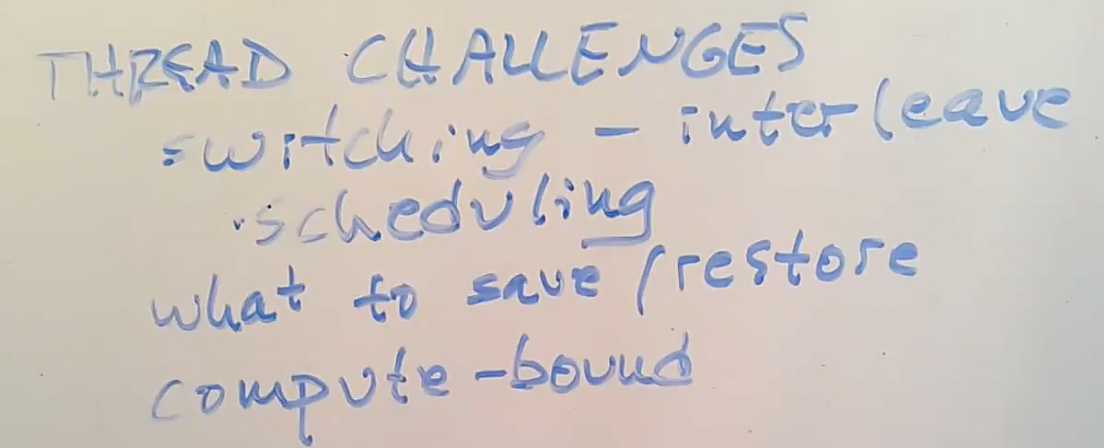 THREAD CHALLENGES
switching - interleave
.scheduling
what to save/restore
compute-bound